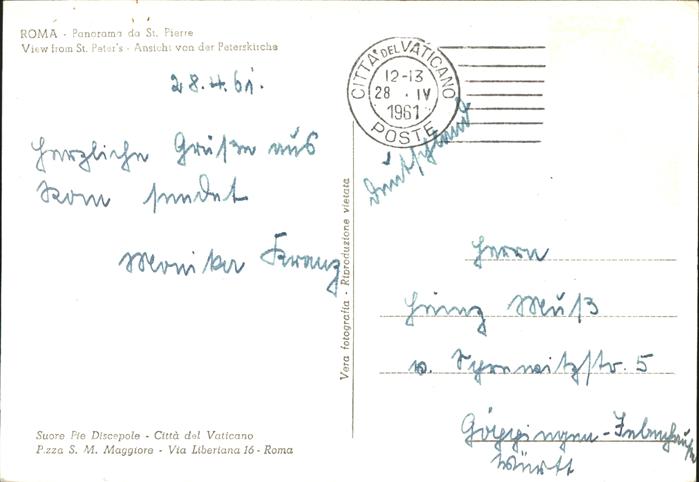 ROMA - Panorama da St. Pierre
View from St. Peter's - Ansicht von der Peterskirche
28.4.61.
Herzliche Grüße aus
Rom sendet
Monika Kranz
Suore Pie Discepole - Città del Vaticano
P.zza S. M. Maggiore - Via Liberiana 16 - Roma
Vera fotografia - Riproduzione vietata
CITTA DEL VATICANO
12-13
28 . IV
1961
POSTE
Deutschland
Herrn
Heinz Muß
5
Göppingen-Jebenhausen
Württ